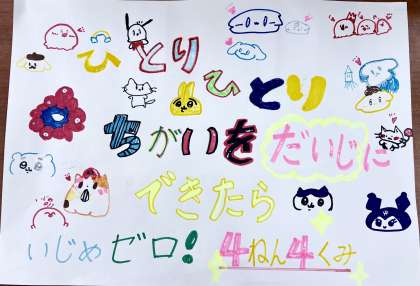 ひとりひとり
ちがいをだいじに
できたら
いじめゼロ! 4ねん4くみ